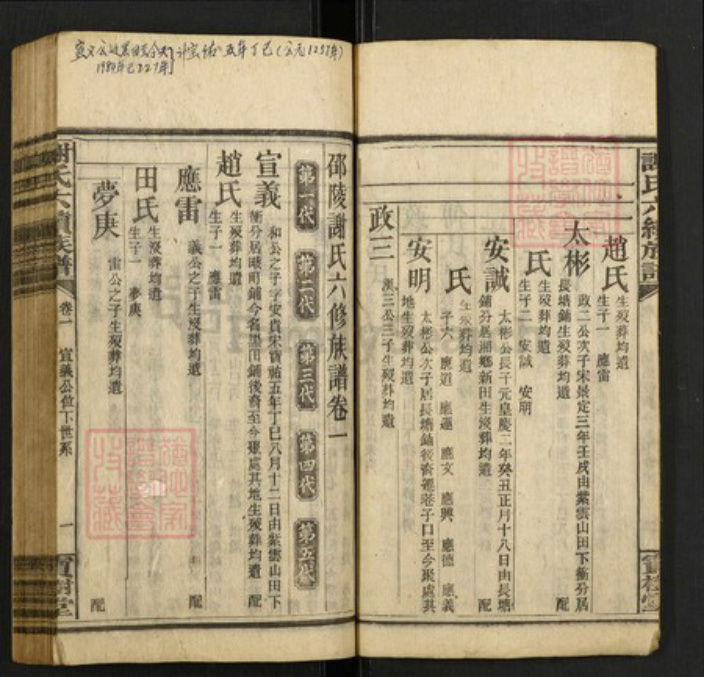 謝氏六續族譜
趙氏 生歿葬均遺
生子一 應雷
太彬 政二公次子宋景定三年壬戌由紫雲山田下衝分居
長塘鋪生歿葬均遺 配
氏 生歿葬均遺
生子二 安誠 安明
安誠 太彬公長子元皇慶二年癸丑正月十八日由長塘
鋪分居湘鄉新田生歿葬均遺 配
氏 生歿葬均遺
子六 應道 應運 應文 應興 應德 應義
安明 太彬公次子居長塘鋪後裔遷巷子口至今聚處其
地生歿葬均遺
政三 漢三公三子生歿葬均遺
邵陵謝氏六修族譜卷一
第一代 第二代 第三代 第四代 第五代
宣義 和公之子字安貴宋寶祐五年丁巳八月十二日由紫雲山田下
衝分居 後裔至今聚處其地生歿葬均遺 配
趙氏 生歿葬均遺
生子一 應雷
應雷 義公之子生歿葬均遺 配
田氏 生歿葬均遺
生子一 夢庚
夢庚 雷公之子生歿葬均遺 配
謝氏六續族譜 卷一 宣義公位下世系 一 寶樹堂
五年丁巳(公元1257年)